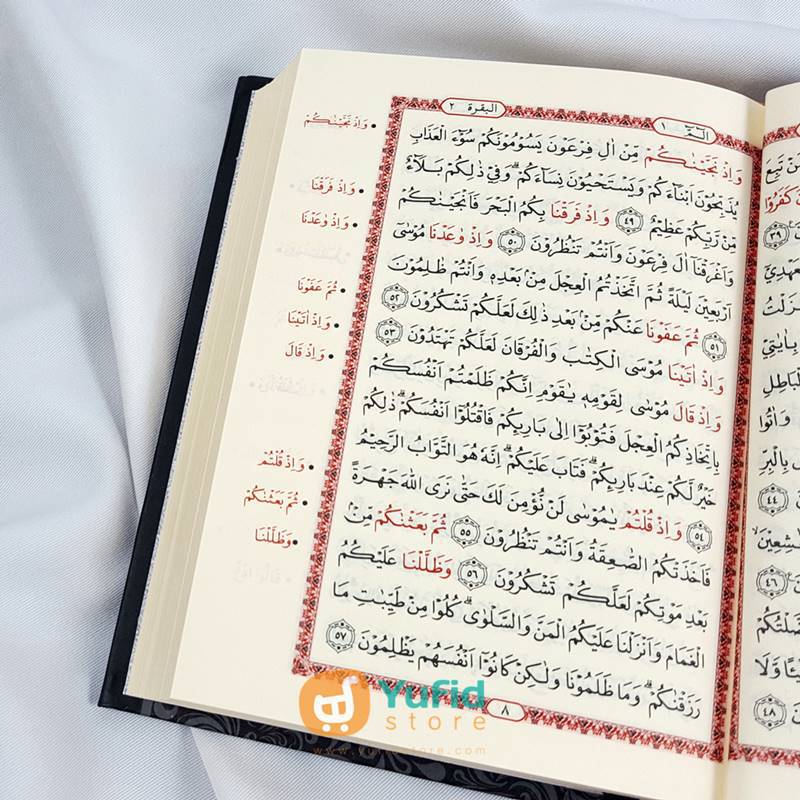 الۤمّۤ ١
البقرة ٢
وَاِذْ نَجَّيْنٰكُمْ مِّنْ اٰلِ فِرْعَوْنَ يَسُوْمُوْنَكُمْ سُوْۤءَ الْعَذَابِ
يُذَبِّحُوْنَ اَبْنَاۤءَكُمْ وَيَسْتَحْيُوْنَ نِسَاۤءَكُمْ ۗ وَفِيْ ذٰلِكُمْ بَلَاۤءٌ
مِّنْ رَّبِّكُمْ عَظِيْمٌ ٤٩ وَاِذْ فَرَقْنَا بِكُمُ الْبَحْرَ فَاَنْجَيْنٰكُمْ
وَاَغْرَقْنَآ اٰلَ فِرْعَوْنَ وَاَنْتُمْ تَنْظُرُوْنَ ٥٠ وَاِذْ وٰعَدْنَا مُوْسٰىٓ
اَرْبَعِيْنَ لَيْلَةً ثُمَّ اتَّخَذْتُمُ الْعِجْلَ مِنْۢ بَعْدِهٖ وَاَنْتُمْ ظٰلِمُوْنَ
٥١ ثُمَّ عَفَوْنَا عَنْكُمْ مِّنْۢ بَعْدِ ذٰلِكَ لَعَلَّكُمْ تَشْكُرُوْنَ ٥٢
وَاِذْ اٰتَيْنَا مُوْسَى الْكِتٰبَ وَالْفُرْقَانَ لَعَلَّكُمْ تَهْتَدُوْنَ ٥٣
وَاِذْ قَالَ مُوْسٰى لِقَوْمِهٖ يٰقَوْمِ اِنَّكُمْ ظَلَمْتُمْ اَنْفُسَكُمْ
بِاتِّخَاذِكُمُ الْعِجْلَ فَتُوْبُوْٓا اِلٰى بَارِىِٕكُمْ فَاقْتُلُوْٓا اَنْفُسَكُمْ ۗ ذٰلِكُمْ
خَيْرٌ لَّكُمْ عِنْدَ بَارِىِٕكُمْ ۗ فَتَابَ عَلَيْكُمْ ۗ اِنَّهٗ هُوَ التَّوَّابُ الرَّحِيْمُ
٥٤ وَاِذْ قُلْتُمْ يٰمُوْسٰى لَنْ نُّؤْمِنَ لَكَ حَتّٰى نَرَى اللّٰهَ جَهْرَةً
فَاَخَذَتْكُمُ الصّٰعِقَةُ وَاَنْتُمْ تَنْظُرُوْنَ ٥٥ ثُمَّ بَعَثْنٰكُمْ مِّنْۢ
بَعْدِ مَوْتِكُمْ لَعَلَّكُمْ تَشْكُرُوْنَ ٥٦ وَظَلَّلْنَا عَلَيْكُمُ
الْغَمَامَ وَاَنْزَلْنَا عَلَيْكُمُ الْمَنَّ وَالسَّلْوٰى ۗ كُلُوْا مِنْ طَيِّبٰتِ مَا
رَزَقْنٰكُمْ ۗ وَمَا ظَلَمُوْنَا وَلٰكِنْ كَانُوْٓا اَنْفُسَهُمْ يَظْلِمُوْنَ ٥٧
٨
• وَاِذْ نَجَّيْنٰكُمْ
• وَاِذْ فَرَقْنَا
• وَاِذْ وٰعَدْنَا
• ثُمَّ عَفَوْنَا
• وَاِذْ اٰتَيْنَا
• وَاِذْ قَالَ
• وَاِذْ قُلْتُمْ
• ثُمَّ بَعَثْنٰكُمْ
• وَظَلَّلْنَا
Yufid
store
www.yufidstore.com